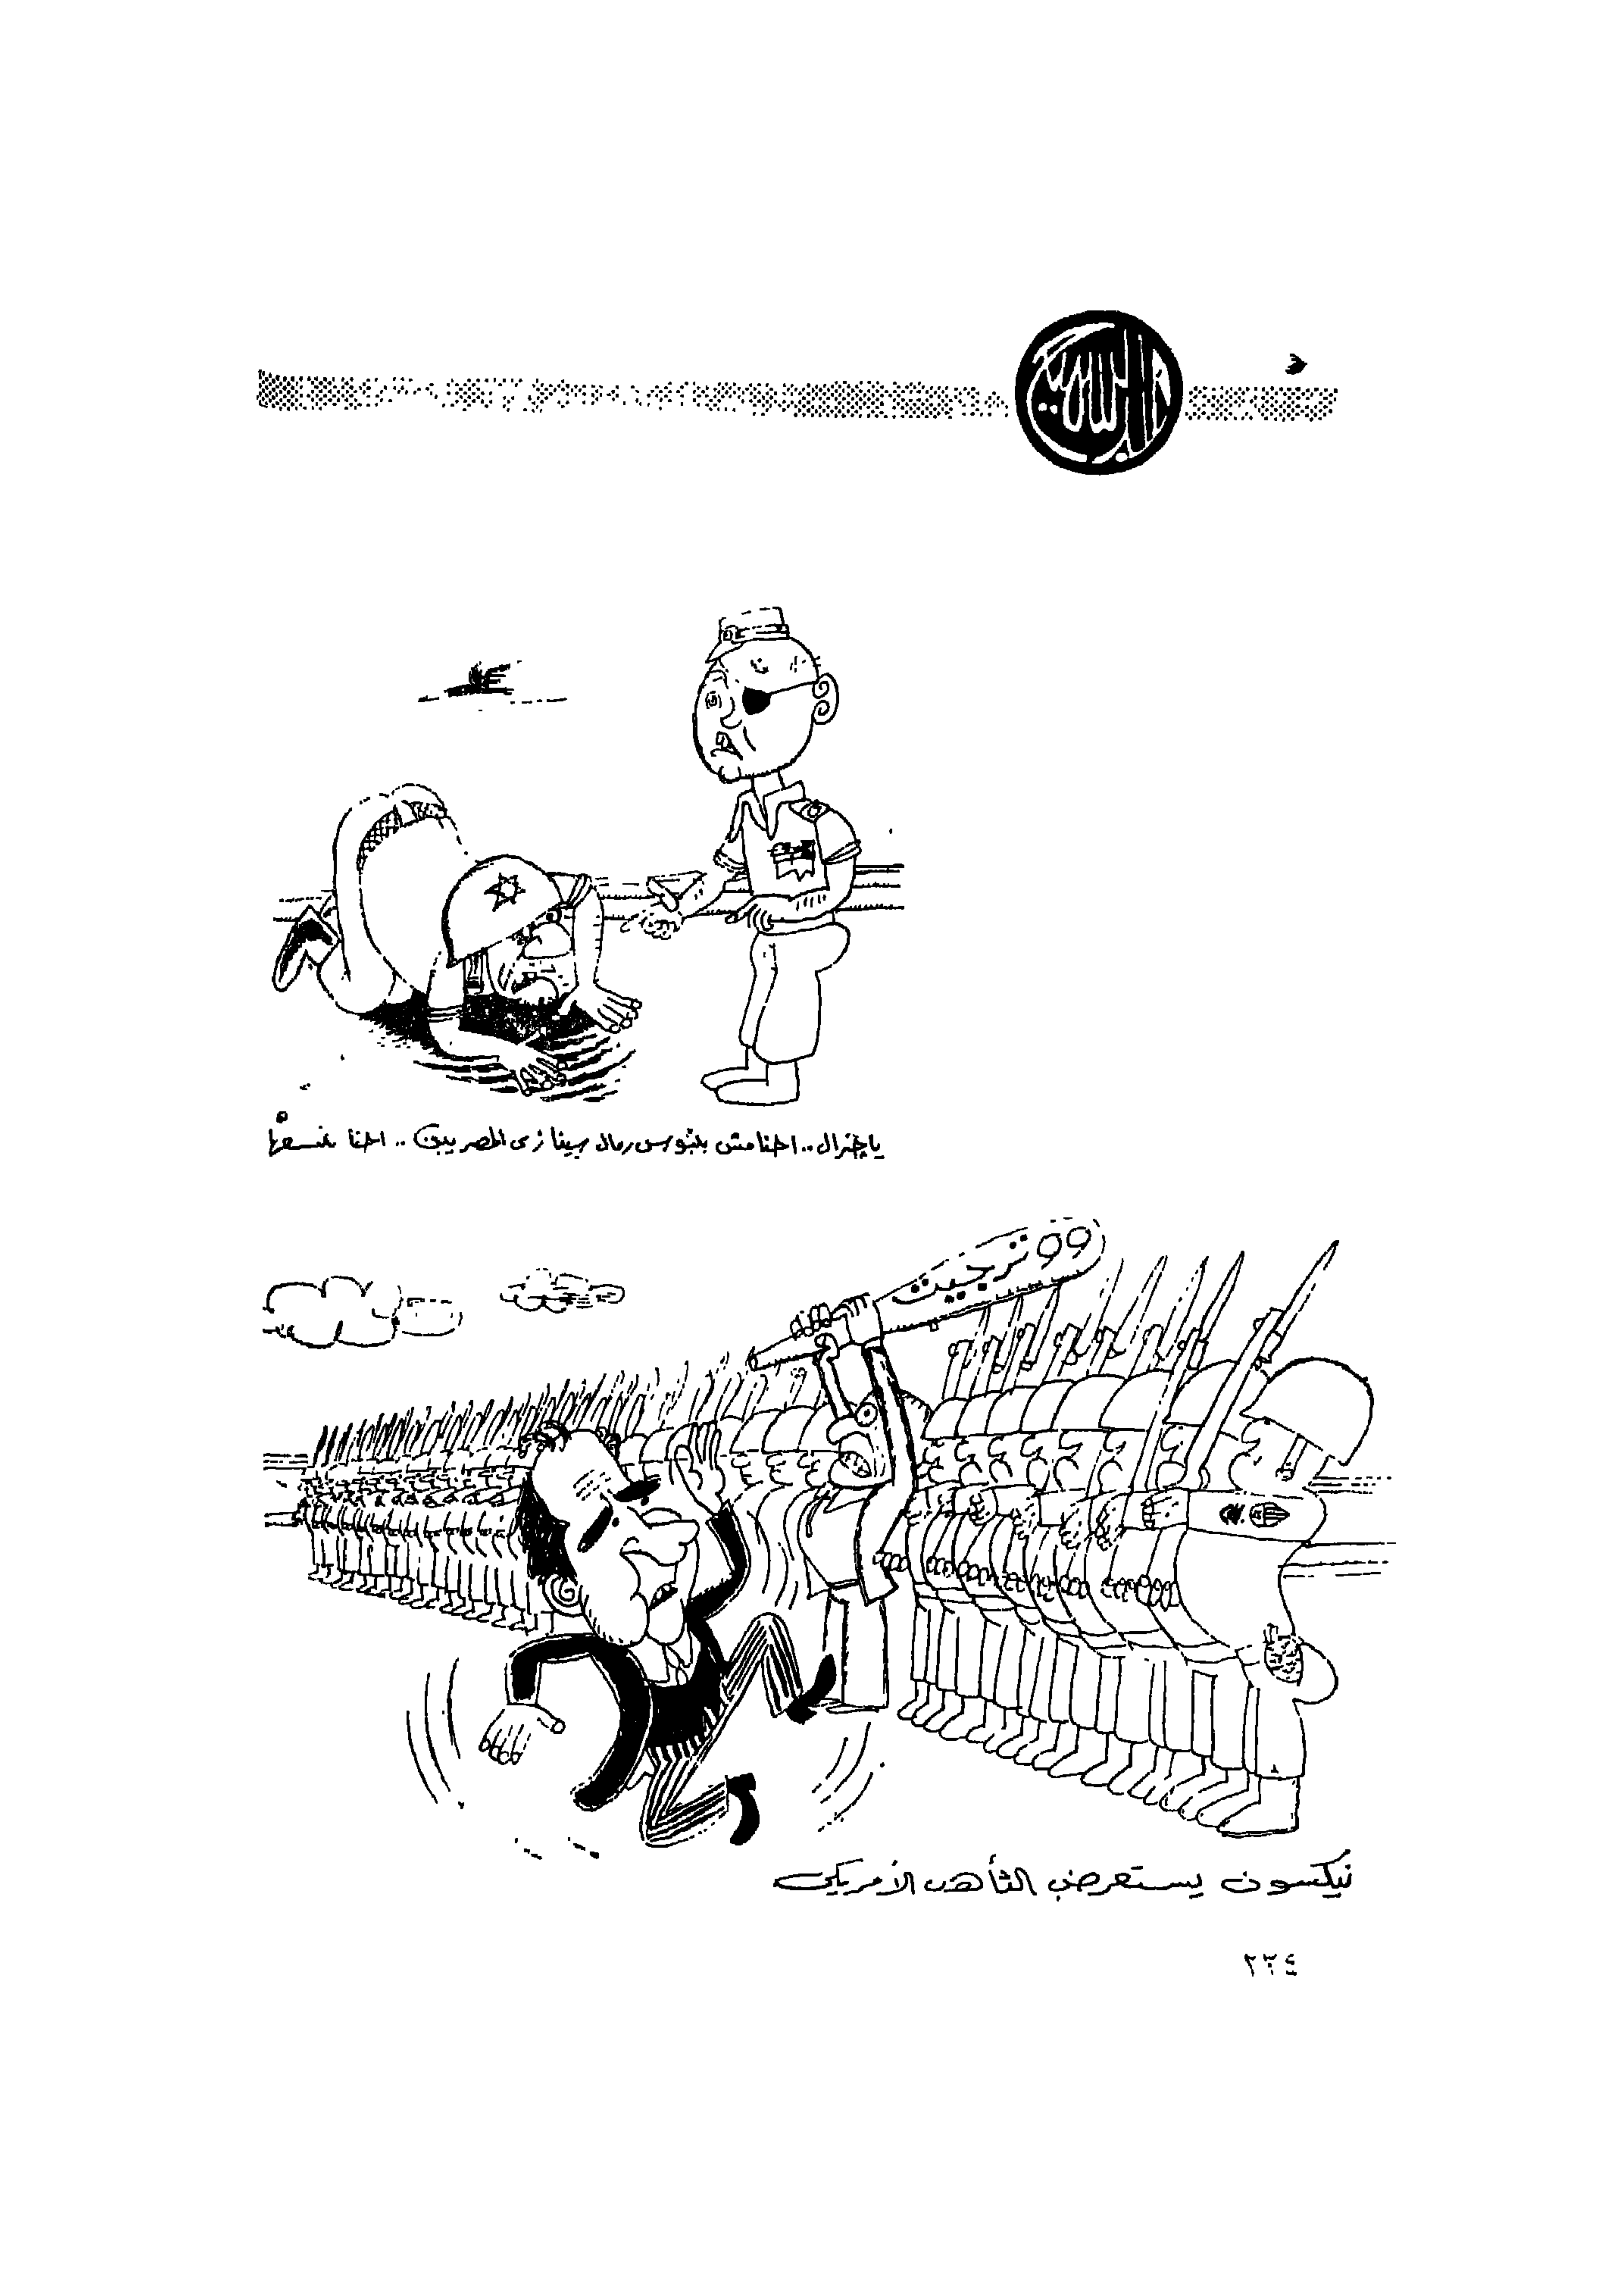 ياچنرال.. احنا مش بنبوس رمال سينا زى المصريين.. احنا بنسفها
ووترجيت
نيكسون يستعرض التأهب الأمريكى
٢٣٤